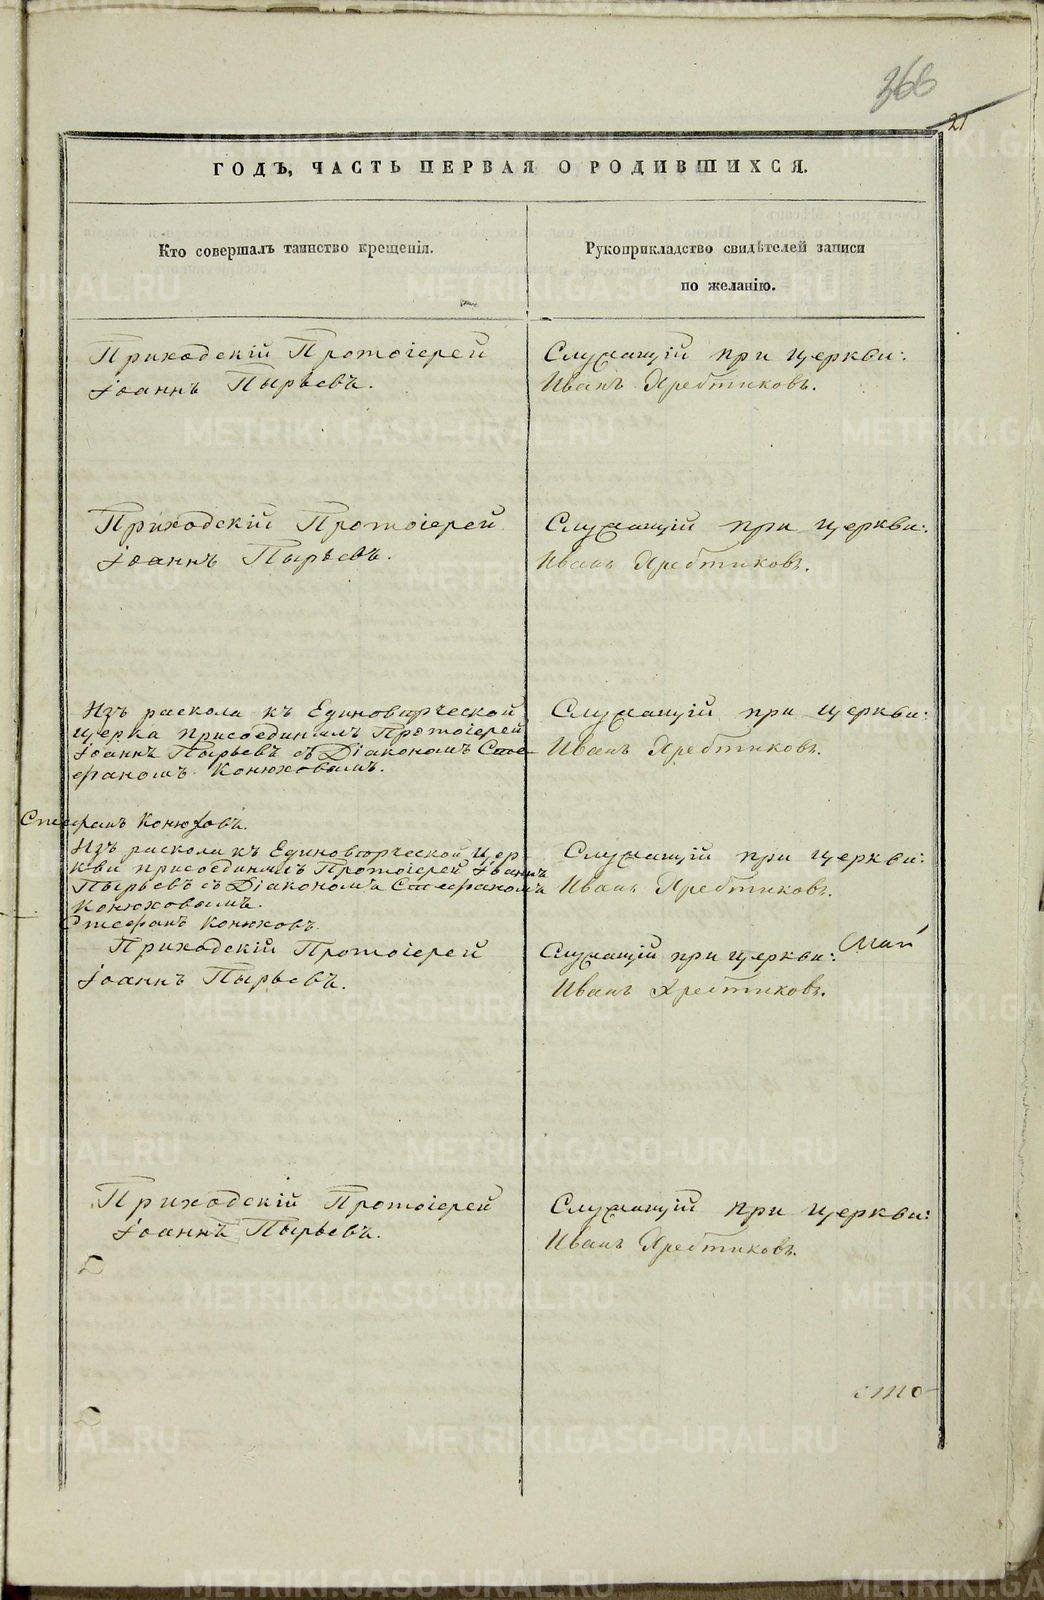 368
21
ГОДЪ, ЧАСТЬ ПЕРВАЯ О РОДИВШИХСЯ.
Кто совершалъ таинство крещенія.
Рукоприкладство свидѣтелей записи
по желанію.
Приходскій Протоіерей
Іоаннъ Пырьевъ.
Служащій при церкви:
Иванъ Хребтиковъ.
Приходскій Протоіерей
Іоаннъ Пырьевъ.
Служащій при церкви:
Иванъ Хребтиковъ.
Изъ раскола къ Единоверческой
церкв присоединилъ Протоіерей
Іоаннъ Пырьевъ съ Діакономъ Сте-
фаномъ Конюховымъ.
Служащій при церкви:
Иванъ Хребтиковъ.
Стефанъ Конюховъ.
Изъ раскола къ Единоверческой Цер-
кви присоединилъ Протоіерей Іоаннъ
Пырьевъ съ Діакономъ Стефаномъ
Конюховымъ.
Стефанъ Конюховъ.
Служащій при церкви:
Иванъ Хребтиковъ.
Приходскій Протоіерей
Іоаннъ Пырьевъ.
Служащій при церкви:
Иванъ Хребтиковъ.
Приходскій Протоіерей
Іоаннъ Пырьевъ.
Служащій при церкви:
Иванъ Хребтиковъ.
METRIKI.GASO-URAL.RU